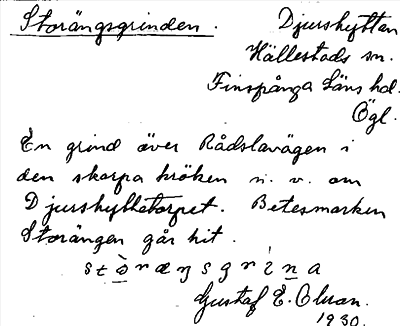 Storängsgrinden.
Djurshyttan
Hällestads sn.
Finspånga Läns hd.
Ögl.
En grind över Rådslavägen i
den skarpa kröken n. v. om
Djurshyttetorpet. Betesmarken
Storängen går hit.
stòræŋsgrìna
Gustaf E. Olsson.
1930.